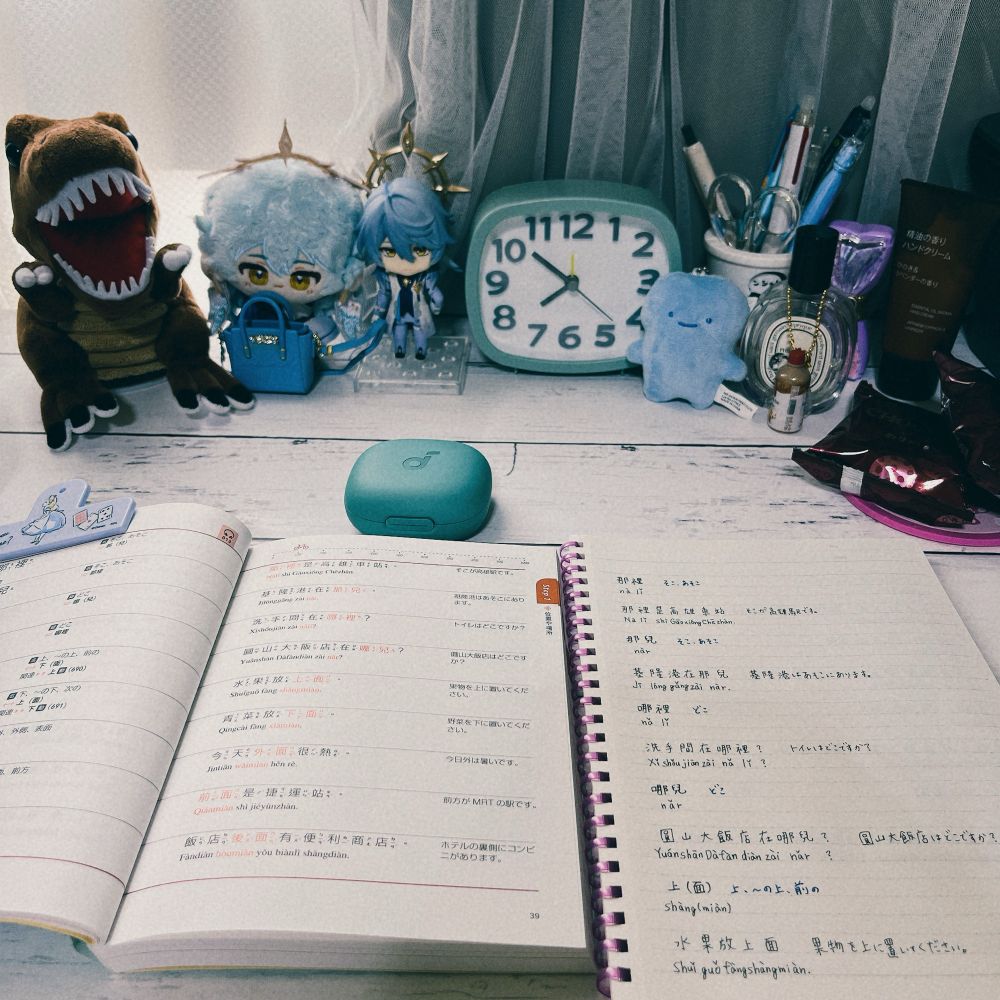 11 12 1
10 2
9 3
8 4
7 6 5
精油の香り
ハンドクリーム
ひのき&
ラベンダーの香り
那裡
そこ、あそこ
那(兒)
どこ
哪裡
どこ
哪(兒)
上、〜の上、前の
下(面)
関連 上 (690)
下、〜の下、次の
上(面)
関連 下 (691)
外、外側、表面
前、前方
那裡是高雄車站。
Nàlǐ shì Gāoxióng Chēzhàn.
そこが高雄駅です。
基隆港在那兒。
Jīlónggǎng zài nàr.
基隆港はあそこにあり
ます。
洗手間在哪裡?
Xǐshǒujiān zài nǎlǐ?
トイレはどこですか?
圓山大飯店在哪兒?
Yuánshān Dàfàndiàn zài nǎr?
圓山大飯店はどこです
か?
水果放上面。
Shuǐguǒ fàng shàngmiàn.
果物を上に置いてくだ
さい。
青菜放下面。
Qīngcài fàng xiàmiàn.
野菜を下に置いてくだ
さい。
今天外面很熱。
Jīntiān wàimiàn hěn rè.
今日外は暑いです。
前面是捷運站。
Qiánmiàn shì jiéyùnzhàn.
前方が MRT の駅です。
飯店後面有便利商店。
Fàndiàn hòumiàn yǒu biànlì shāngdiàn.
ホテルの裏側にコンビ
ニがあります。
39
Step 1
位置や場所
那裡 そこ、あそこ
nà lǐ
那裡是高雄車站 そこが高雄駅です。
Nà lǐ shì Gāo xióng Chē zhàn
那兒 そこ、あそこ
nàr
基隆港在那兒 基隆港はあそこにあります。
Jī lóng gǎng zài nàr.
哪裡 どこ
nǎ lǐ
洗手間在哪裡? トイレはどこですか?
Xǐ shǒu jiān zài nǎ lǐ ?
哪兒 どこ
nǎr
圓山大飯店在哪兒? 圓山大飯店はどこですか?
Yuán shān Dà fàn diàn zài nǎr ?
上(面) 上、〜の上、前の
shàng(miàn)
水果放上面 果物を上に置いてください。
Shuǐ guǒ fàng shàng miàn.